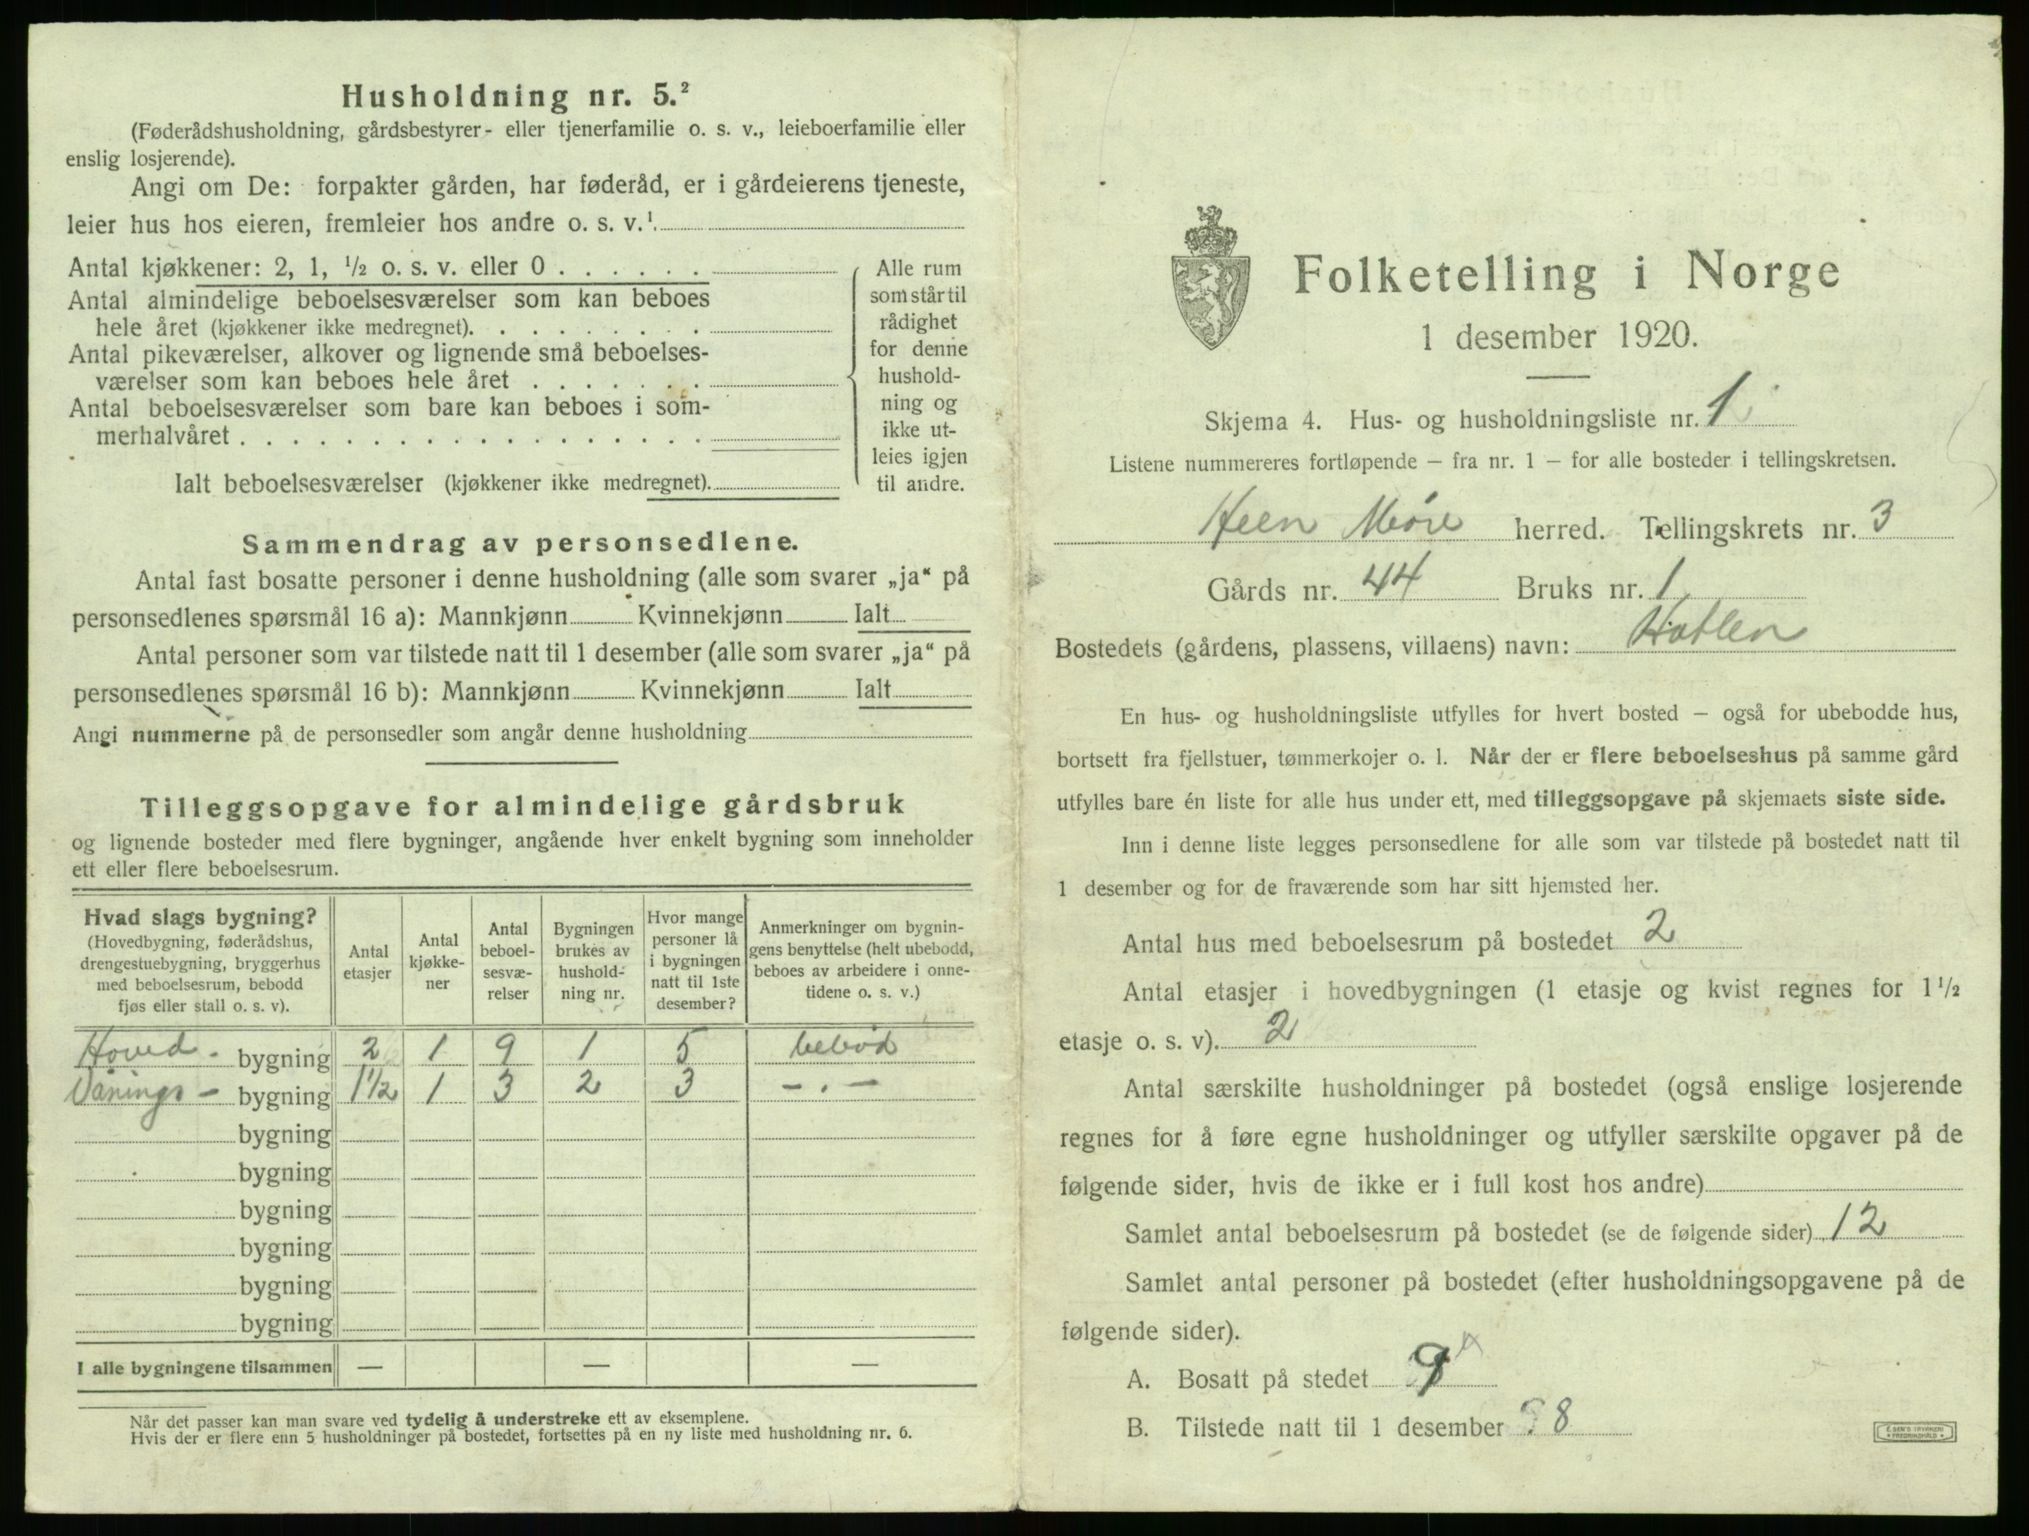 Husholdning nr. 5.²
(Føderådshusholdning, gårdsbestyrer- eller tjenerfamilie o. s. v., leieboerfamilie eller
enslig losjerende).
Angi om De: forpakter gården, har føderåd, er i gårdeierens tjeneste,
leier hus hos eieren, fremleier hos andre o. s. v.¹
Antal kjøkkener: 2, 1, ½ o. s. v. eller 0 . . . . . .
Antal almindelige beboelsesværelser som kan beboes
hele året (kjøkkener ikke medregnet). . . . . . . . .
Antal pikeværelser, alkover og lignende små beboelses-
værelser som kan beboes hele året . . . . . . .
Antal beboelsesværelser som bare kan beboes i som-
merhalvåret . . . . . . . . . . . . . . . . . .
Ialt beboelsesværelser (kjøkkener ikke medregnet).
Alle rum
som står til
rådighet
for denne
hushold-
ning og
ikke ut-
leies igjen
til andre.
Sammendrag av personsedlene.
Antal fast bosatte personer i denne husholdning (alle som svarer „ja“ på
personsedlenes spørsmål 16 a): Mannkjønn Kvinnekjønn Ialt
Antal personer som var tilstede natt til 1 desember (alle som svarer „ja“ på
personsedlenes spørsmål 16 b): Mannkjønn Kvinnekjønn Ialt
Angi nummerne på de personsedler som angår denne husholdning
Tilleggsopgave for almindelige gårdsbruk
og lignende bosteder med flere bygninger, angående hver enkelt bygning som inneholder
ett eller flere beboelsesrum.
Hvad slags bygning?
(Hovedbygning, føderådshus,
drengestuebygning, bryggerhus
med beboelsesrum, bebodd
fjøs eller stall o. s. v).
Antal
etasjer
Antal
kjøkke-
ner
Antal
beboel-
sesvæ-
relser
Bygningen
brukes av
hushold-
ning nr.
Hvor mange
personer lå
i bygningen
natt til 1ste
desember?
Anmerkninger om bygnin-
gens benyttelse (helt ubebodd,
beboes av arbeidere i onne-
tidene o. s. v.)
Hoved- bygning 2 1 9 1 5 bebod
Vånings- bygning 1½ 1 3 2 3 – . –
bygning
bygning
bygning
bygning
bygning
bygning
I alle bygningene tilsammen — — —
Når det passer kan man svare ved tydelig å understreke ett av eksemplene.
Hvis der er flere enn 5 husholdninger på bostedet, fortsettes på en ny liste med husholdning nr. 6.
Folketelling i Norge
1 desember 1920.
Skjema 4. Hus- og husholdningsliste nr. 1
Listene nummereres fortløpende – fra nr. 1 – for alle bosteder i tellingskretsen.
Heen Møre herred. Tellingskrets nr. 3
Gårds nr. 44 Bruks nr. 1
Bostedets (gårdens, plassens, villaens) navn: Hatlen
En hus- og husholdningsliste utfylles for hvert bosted – også for ubebodde hus,
bortsett fra fjellstuer, tømmerkojer o. l. Når der er flere beboelseshus på samme gård
utfylles bare én liste for alle hus under ett, med tilleggsopgave på skjemaets siste side.
Inn i denne liste legges personsedlene for alle som var tilstede på bostedet natt til
1 desember og for de fraværende som har sitt hjemsted her.
Antal hus med beboelsesrum på bostedet 2
Antal etasjer i hovedbygningen (1 etasje og kvist regnes for 1½
etasje o. s. v). 2
Antal særskilte husholdninger på bostedet (også enslige losjerende
regnes for å føre egne husholdninger og utfyller særskilte opgaver på de
følgende sider, hvis de ikke er i full kost hos andre)
Samlet antal beboelsesrum på bostedet (se de følgende sider) 12
Samlet antal personer på bostedet (efter husholdningsopgavene på de
følgende sider).
A. Bosatt på stedet 9
B. Tilstede natt til 1 desember 8